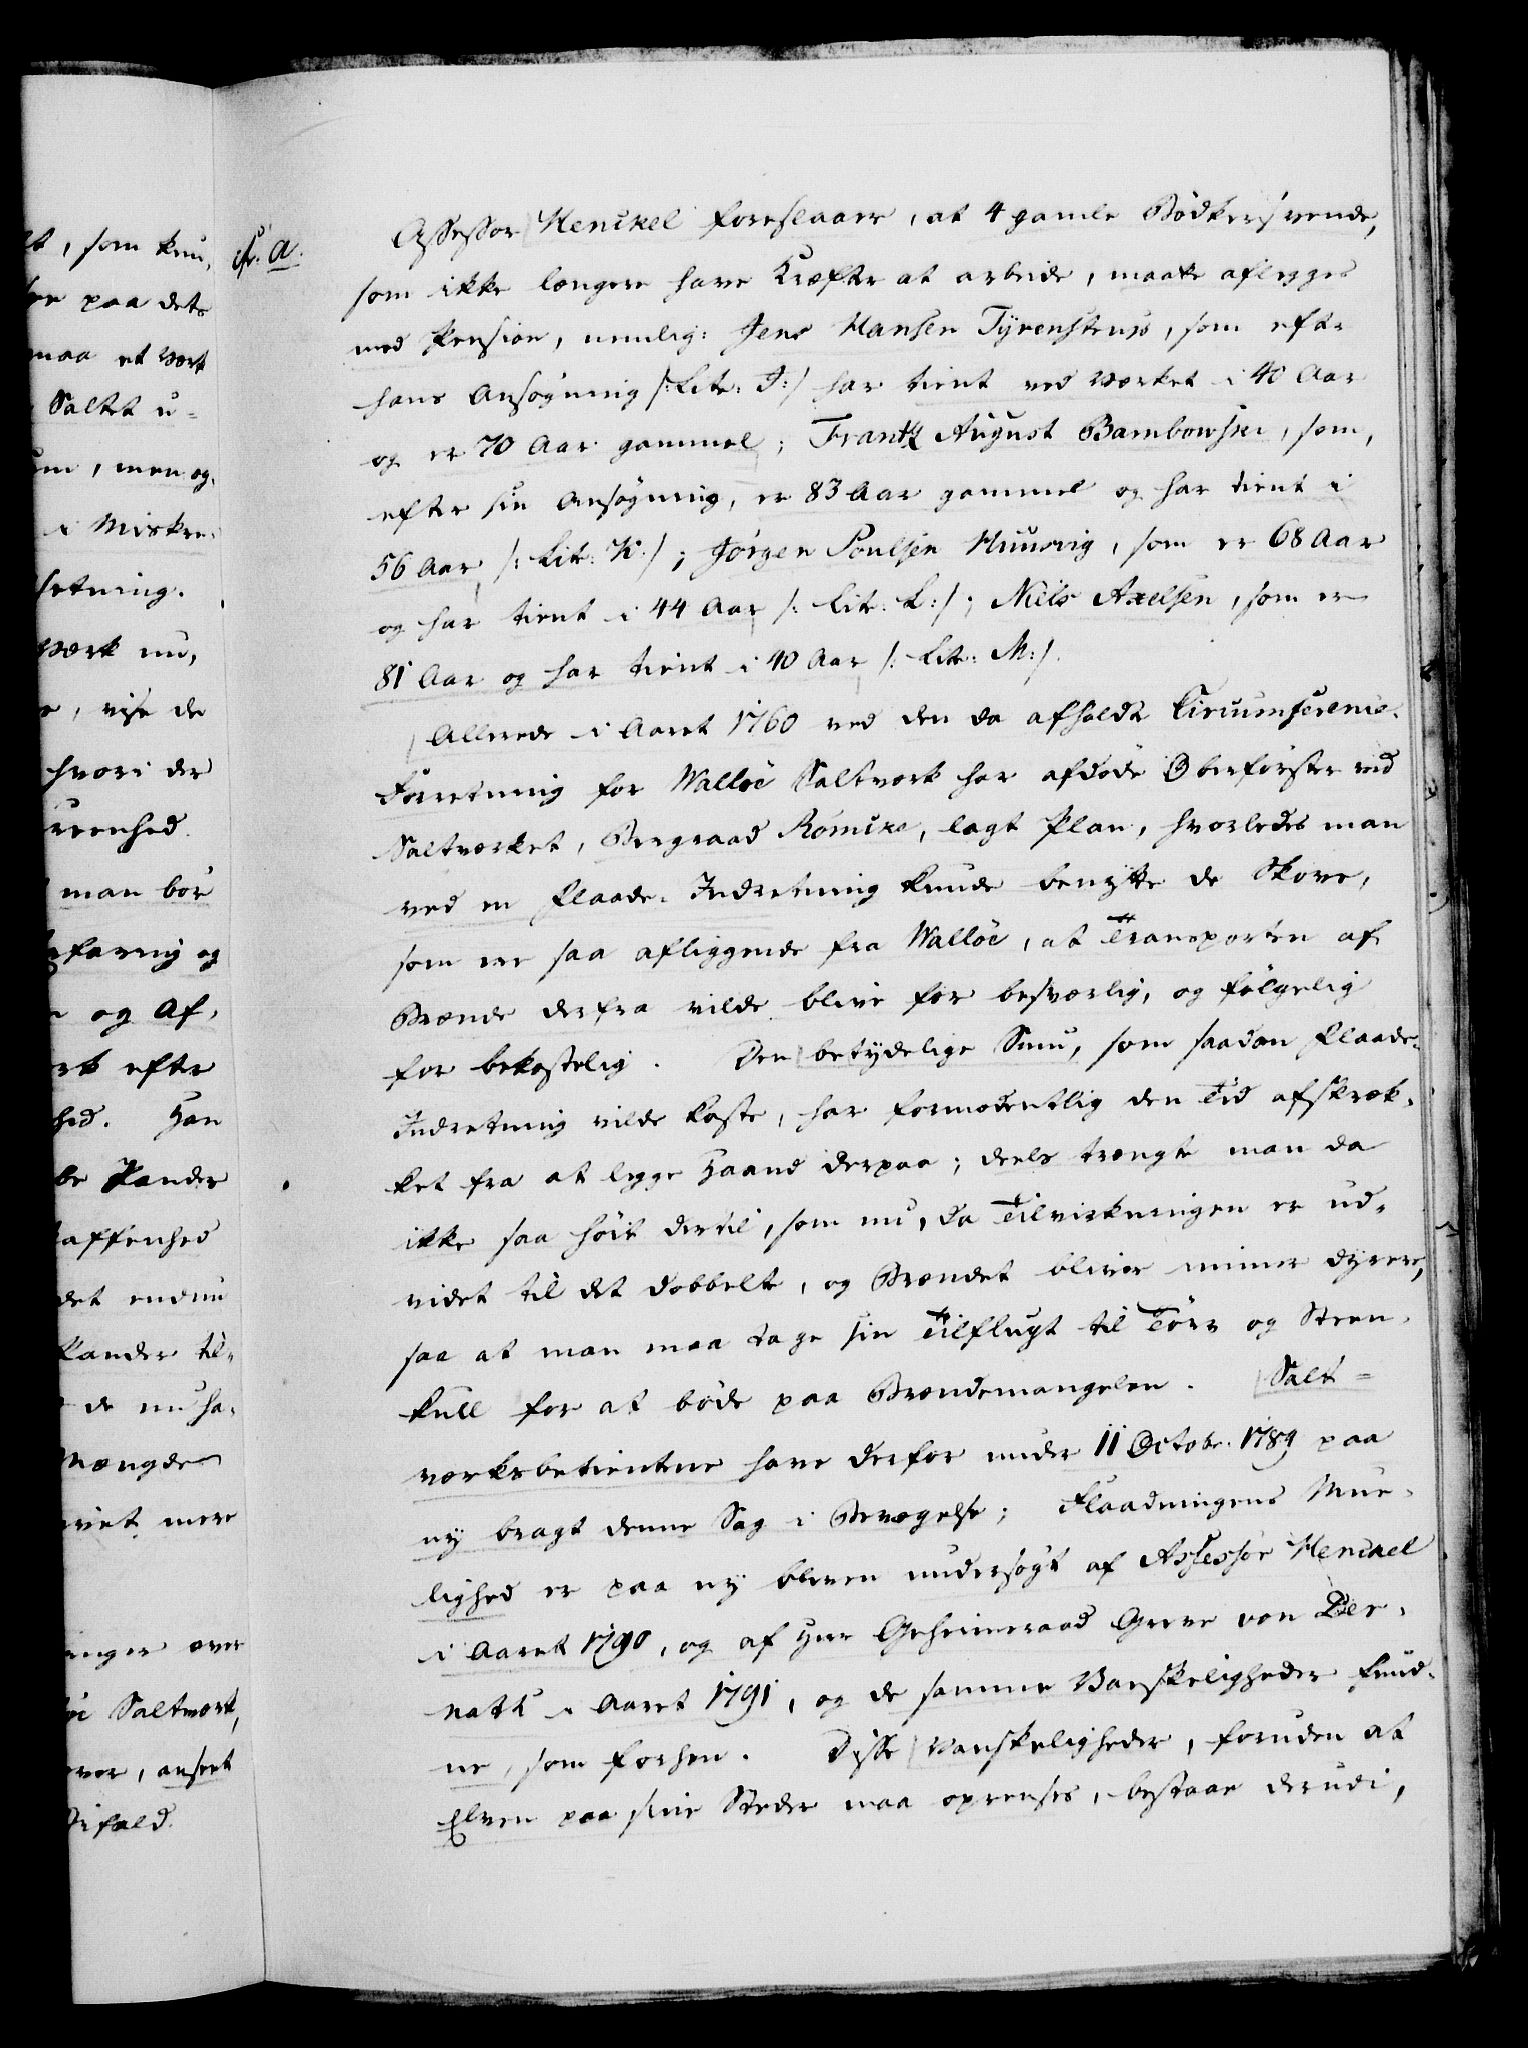 lt, som kun,
paa dets
maa et Værk
Saltet u=
om, men og,
i Miskre,
setning.
Værk nu,
, vise de
hvori der
reenhed.
man bör
rfaring og
og Af,
rk efter
hed. Han
be Pander
kaffenhed
det endnu
Pander til=
de nu ha,
Mængde
mere
inger over
öe Saltverk,
over, anseet
Difald.
cfr. a.
Assessor Henckel foreslaaer, at 4 gamle Bödkersvende,
som ikke længere have Kræfter at arbeide, maatte aflegges
med Pension, nemlig: Jens Hansen Tyrenstrup, som efter
hans Ansögning /:Litr: I:/ har tient ved Værket i 40 Aar
og er 70 Aar gammel; Frantz August Bambowsky, som,
efter sin Ansögning, er 83 Aar gammel og har tient i
56 Aar /: Litr: K:/; Jörgen Poulsen Huusvig, som er 68 Aar
og har tient i 44 Aar /: Litr: L:/; Niels Axelsen, som er
81 Aar og har tient i 40 Aar /: Litr: M:/.
Allerede i Aaret 1760 ved den da afholdte Circumferenis-
Forretning for Walloe Saltverk har afdöde Oberförster ved
Saltverket, Bergraad Römcke, lagt Plan, hvorledes man
ved en Flaade-Indretning kunde benytte de Skove,
som ere saa afliggende fra Wallöe, at Transporten af
Brænde derfra vilde blive for besværlig, og fölgelig
for bekostelig. Den betydelige Sum, som saadan Flaade-
Indretning vilde koste, har formodentlig den Tid afskræk-
ket fra at legge Haand derpaa; deels trængte man da
ikke saa höit dertil, som nu, da Tilvirkningen er ud-
videt til det dobbelte, og Brændet bliver immer dyrere,
saa at man maa tage sin Tilflugt til Törv og Steen-
kull for at böde paa Brændemangelen. Salt=
værksbetientene have derfor under 11 Octobr. 1789 paa
ny bragt denne Sag i Bevægelse; Flaadningens Mue-
lighed er paa ny bleven undersögt af Assessor Henckel
i Aaret 1790, og af Herr Geheimeraad Greve von Der-
nath i Aaret 1791, og de samme Vanskeligheder fund-
ne, som forhen. Disse Vanskeligheder, foruden at
Elven paa sine Steder maa oprenses, bestaae derudi,